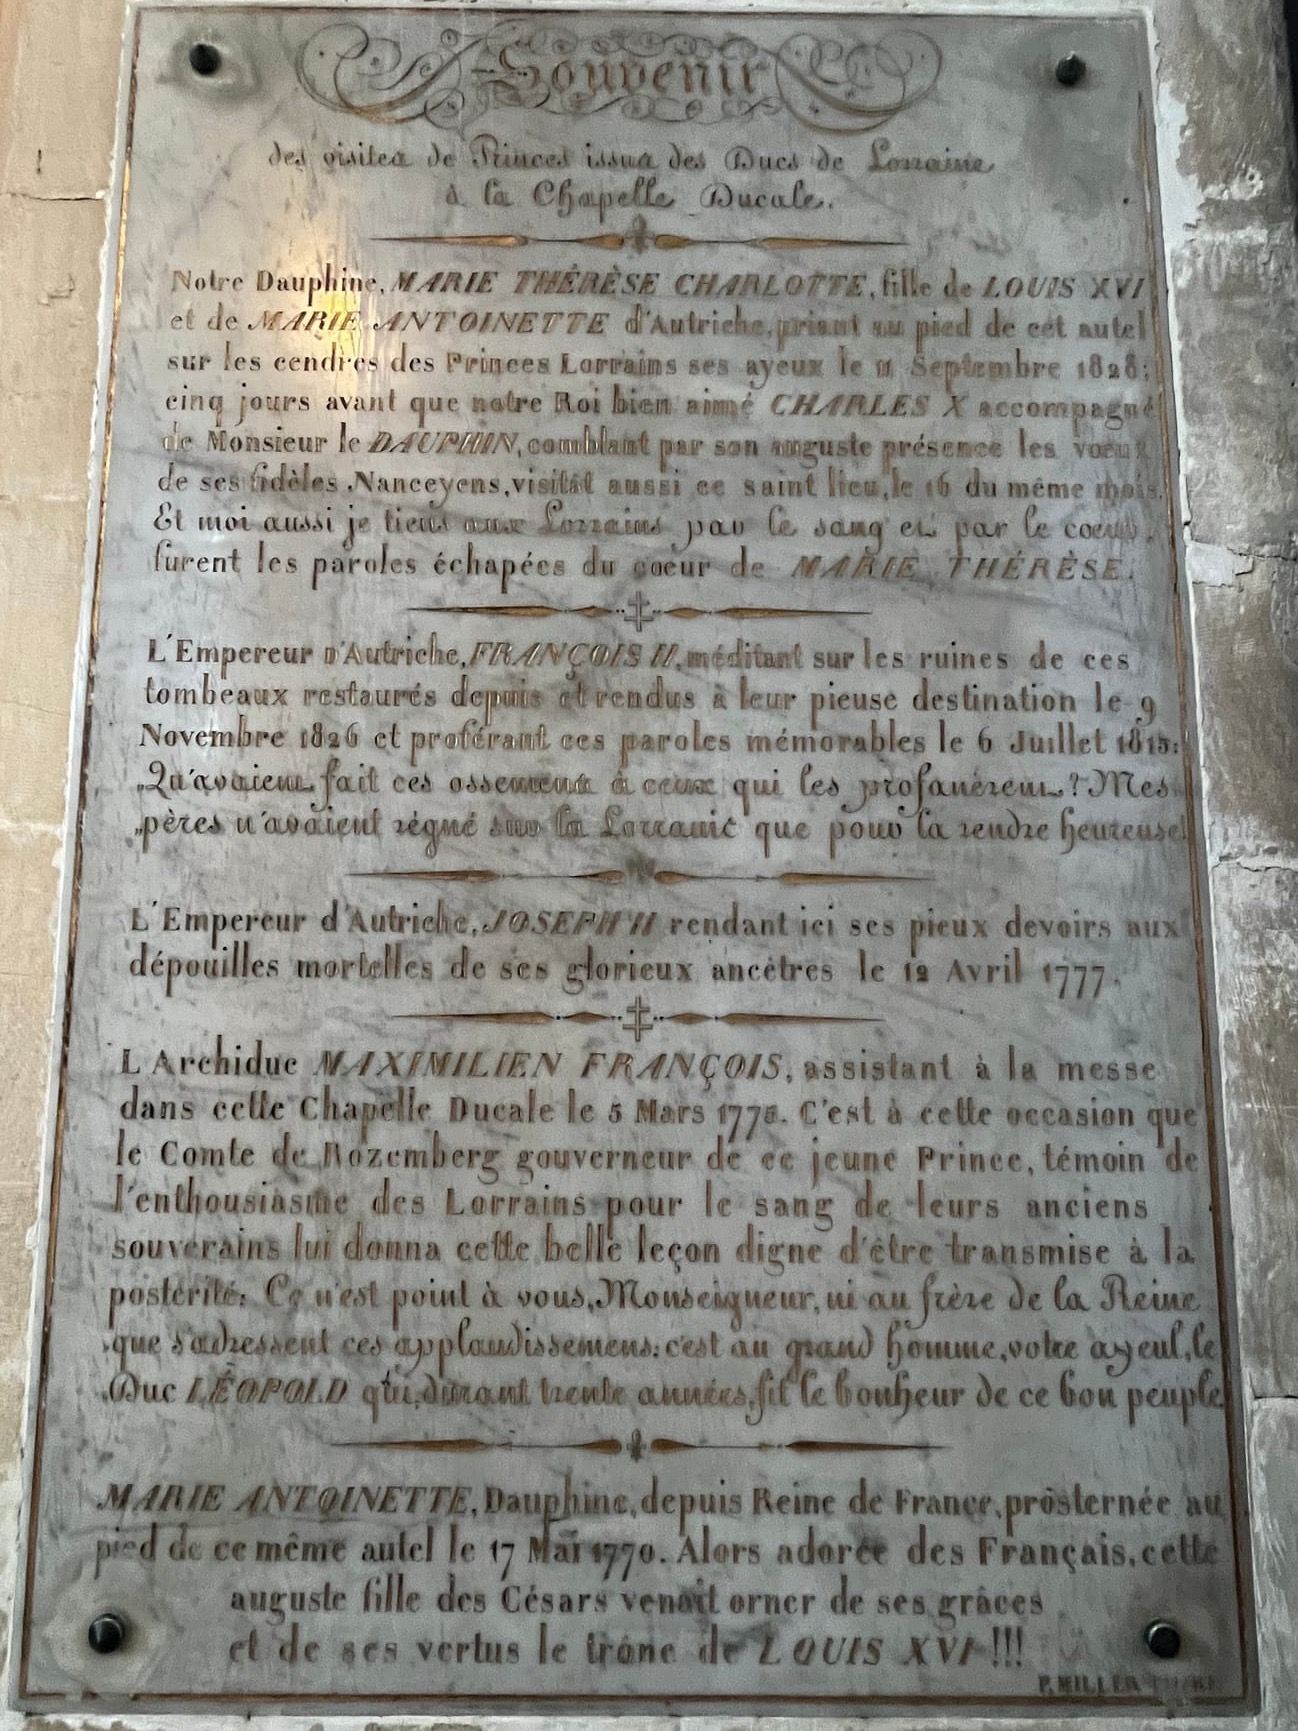 Souvenir
des visites de Princes issus des Ducs de Lorraine
à la Chapelle Ducale.
Notre Dauphine, MARIE THÉRÈSE CHARLOTTE, fille de LOUIS XVI
et de MARIE ANTOINETTE d'Autriche, priant au pied de cet autel
sur les cendres des Princes Lorrains ses ayeux le 11 Septembre 1828;
cinq jours avant que notre Roi bien aimé CHARLES X accompagné
de Monsieur le DAUPHIN, comblant par son auguste présence les vœux
de ses fidèles Nanceyens, visitât aussi ce saint lieu, le 16 du même mois.
Et moi aussi je tiens aux Lorrains par le sang et par le coeur,
furent les paroles échapées du coeur de MARIE THÉRÈSE.
L'Empereur d'Autriche, FRANÇOIS II, méditant sur les ruines de ces
tombeaux restaurés depuis et rendus à leur pieuse destination le 9
Novembre 1826 et proférant ces paroles mémorables le 6 Juillet 1815:
„Qu'avaient fait ces ossemens à ceux qui les profanèrent? Mes
„pères n'avaient régné sur la Lorraine que pour la rendre heureuse!
L'Empereur d'Autriche, JOSEPH II rendant ici ses pieux devoirs aux
dépouilles mortelles de ses glorieux ancêtres le 12 Avril 1777.
L'Archiduc MAXIMILIEN FRANÇOIS, assistant à la messe
dans cette Chapelle Ducale le 5 Mars 1775. C'est à cette occasion que
le Comte de Rozemberg gouverneur de ce jeune Prince, témoin de
l'enthousiasme des Lorrains pour le sang de leurs anciens
souverains lui donna cette belle leçon digne d'être transmise à la
postérité: Ce n'est point à vous, Monseigneur, ni au frère de la Reine
que s'adressent ces applaudissemens: c'est au grand homme, votre ayeul, le
Duc LÉOPOLD qui, durant trente années, fit le bonheur de ce bon peuple.
MARIE ANTOINETTE, Dauphine, depuis Reine de France, prôsternée au
pied de ce même autel le 17 Mai 1770. Alors adorée des Français, cette
auguste fille des Césars venait orner de ses grâces
et de ses vertus le trône de LOUIS XVI!!!
P. HILLER